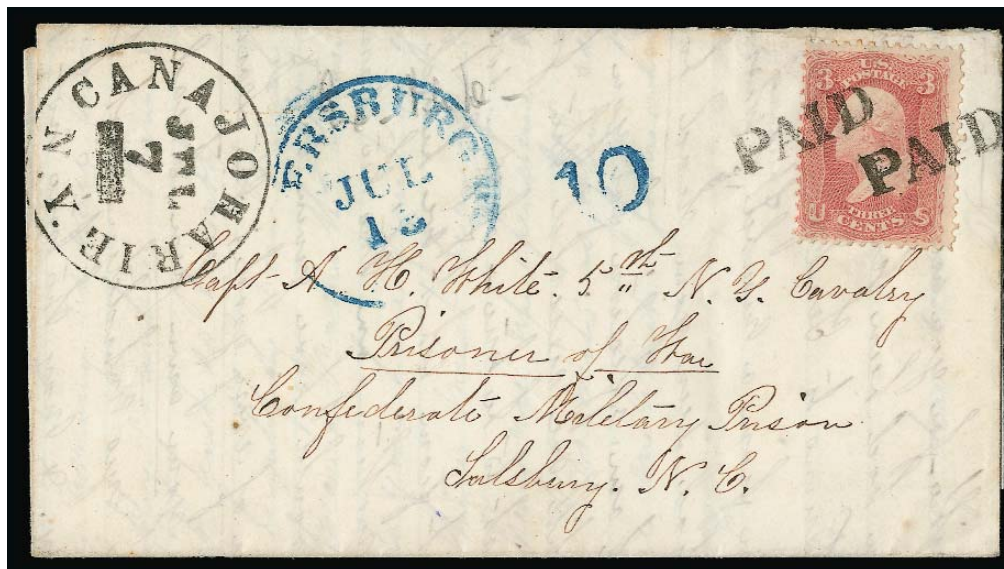 CANAJOHARIE. N.Y
JUL
7
ERSBURG
JUL
13
10
PAID
PAID
3 U.S. 3
POSTAGE
U S
THREE
CENTS
Capt A. H. White. 5th N. Y. Cavalry
Prisoner of War
Confederate Military Prison
Salsbury. N. C.